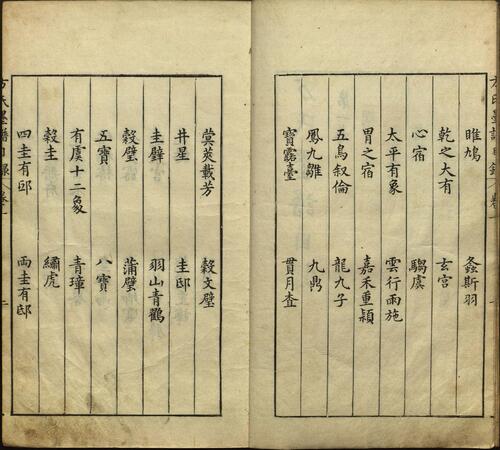 雎鳩 螽斯羽
乾之大有 玄宮
心宿 騶虞
太平有象 雲行雨施
胃之宿 嘉禾重穎
五鳥叙倫 龍九子
鳳九雛 九鼎
寶露臺 貫月查
蓂莢載芳 穀文璧
井星 圭邸
圭璧 羽山青鸐
穀璧 蒲璧
五寶 八寶
有虞十二象 青璋
穀圭 繡虎
四圭有邸 兩圭有邸
方氏墨譜目錄 卷一